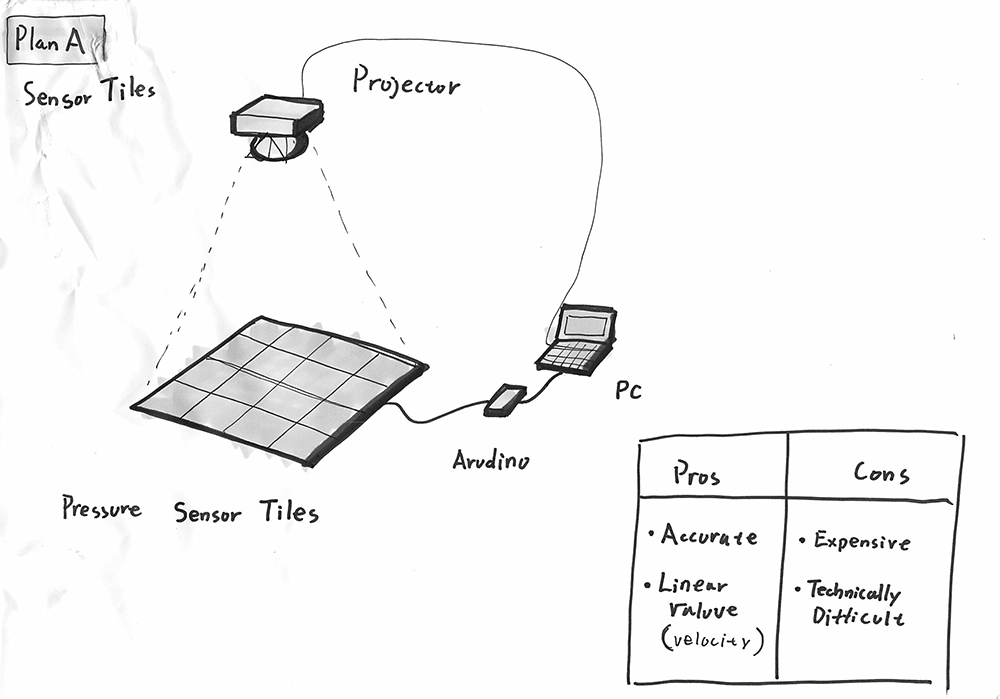 Plan A
Sensor Tiles
Projector
PC
Arudino
Pressure Sensor Tiles
Pros
Cons
• Accurate
• Linear
valuve
(velocity)
• Expensive
• Technically
Difficult